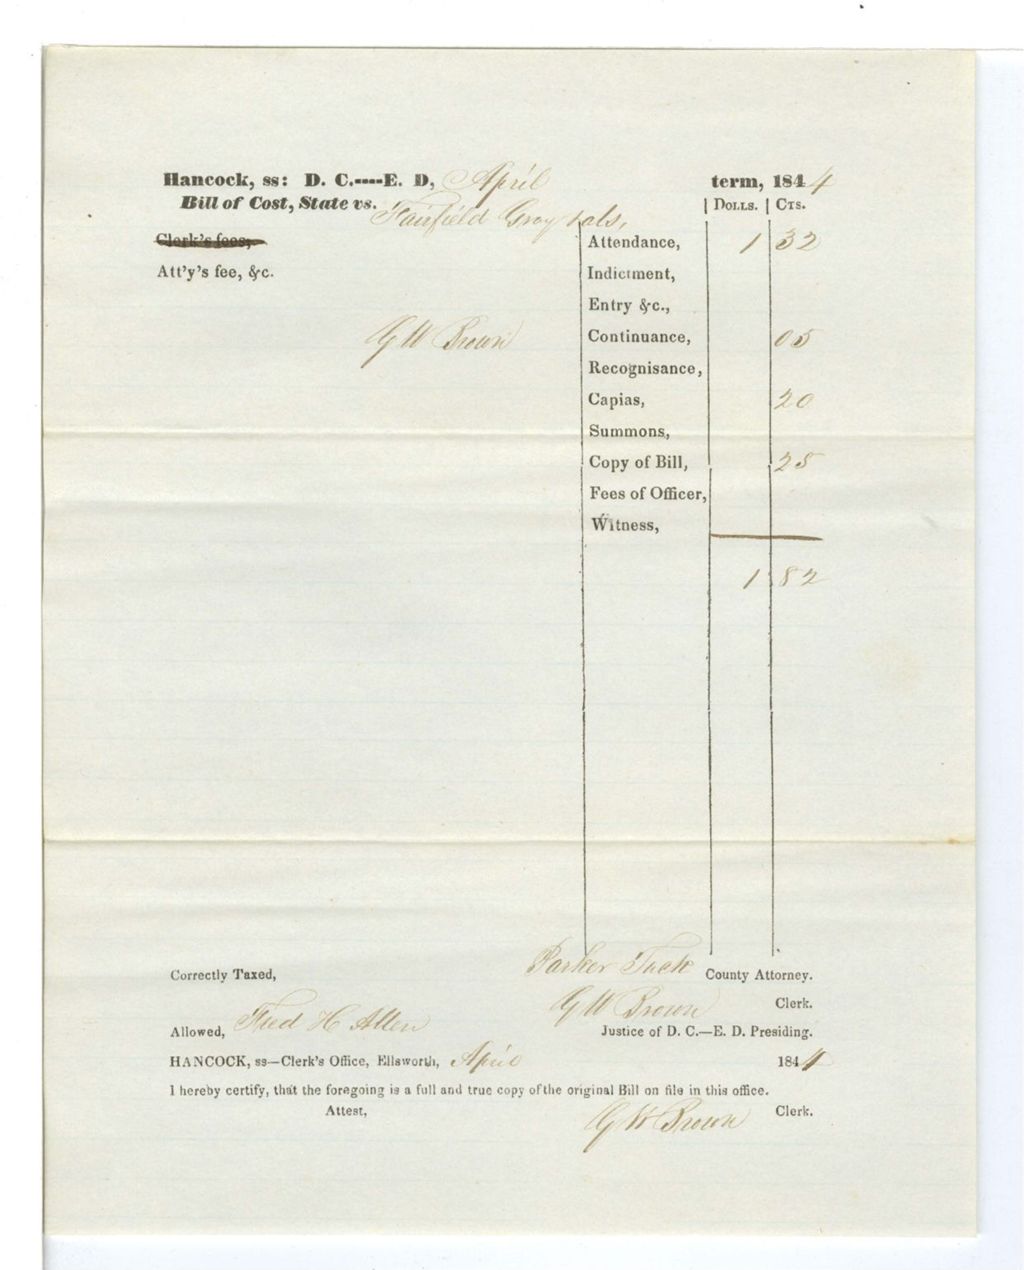 Hancock, ss: D. C.----E. D, April term, 1844
Bill of Cost, State vs. Fairfield Gray & als, | Dolls. | Cts.
Clerk's fees, Attendance, 1 32
Att'y's fee, &c. Indictment,
Entry &c.,
G W Brown Continuance, 05
Recognisance,
Capias, 20
Summons,
Copy of Bill, 25
Fees of Officer,
Witness,
1 82
Correctly Taxed, Parker Tuck County Attorney.
G W Brown Clerk.
Allowed, Fred H Allen Justice of D. C.—E. D. Presiding.
HANCOCK, ss—Clerk's Office, Ellsworth, April 1844
I hereby certify, that the foregoing is a full and true copy of the original Bill on file in this office.
Attest, G W Brown Clerk.